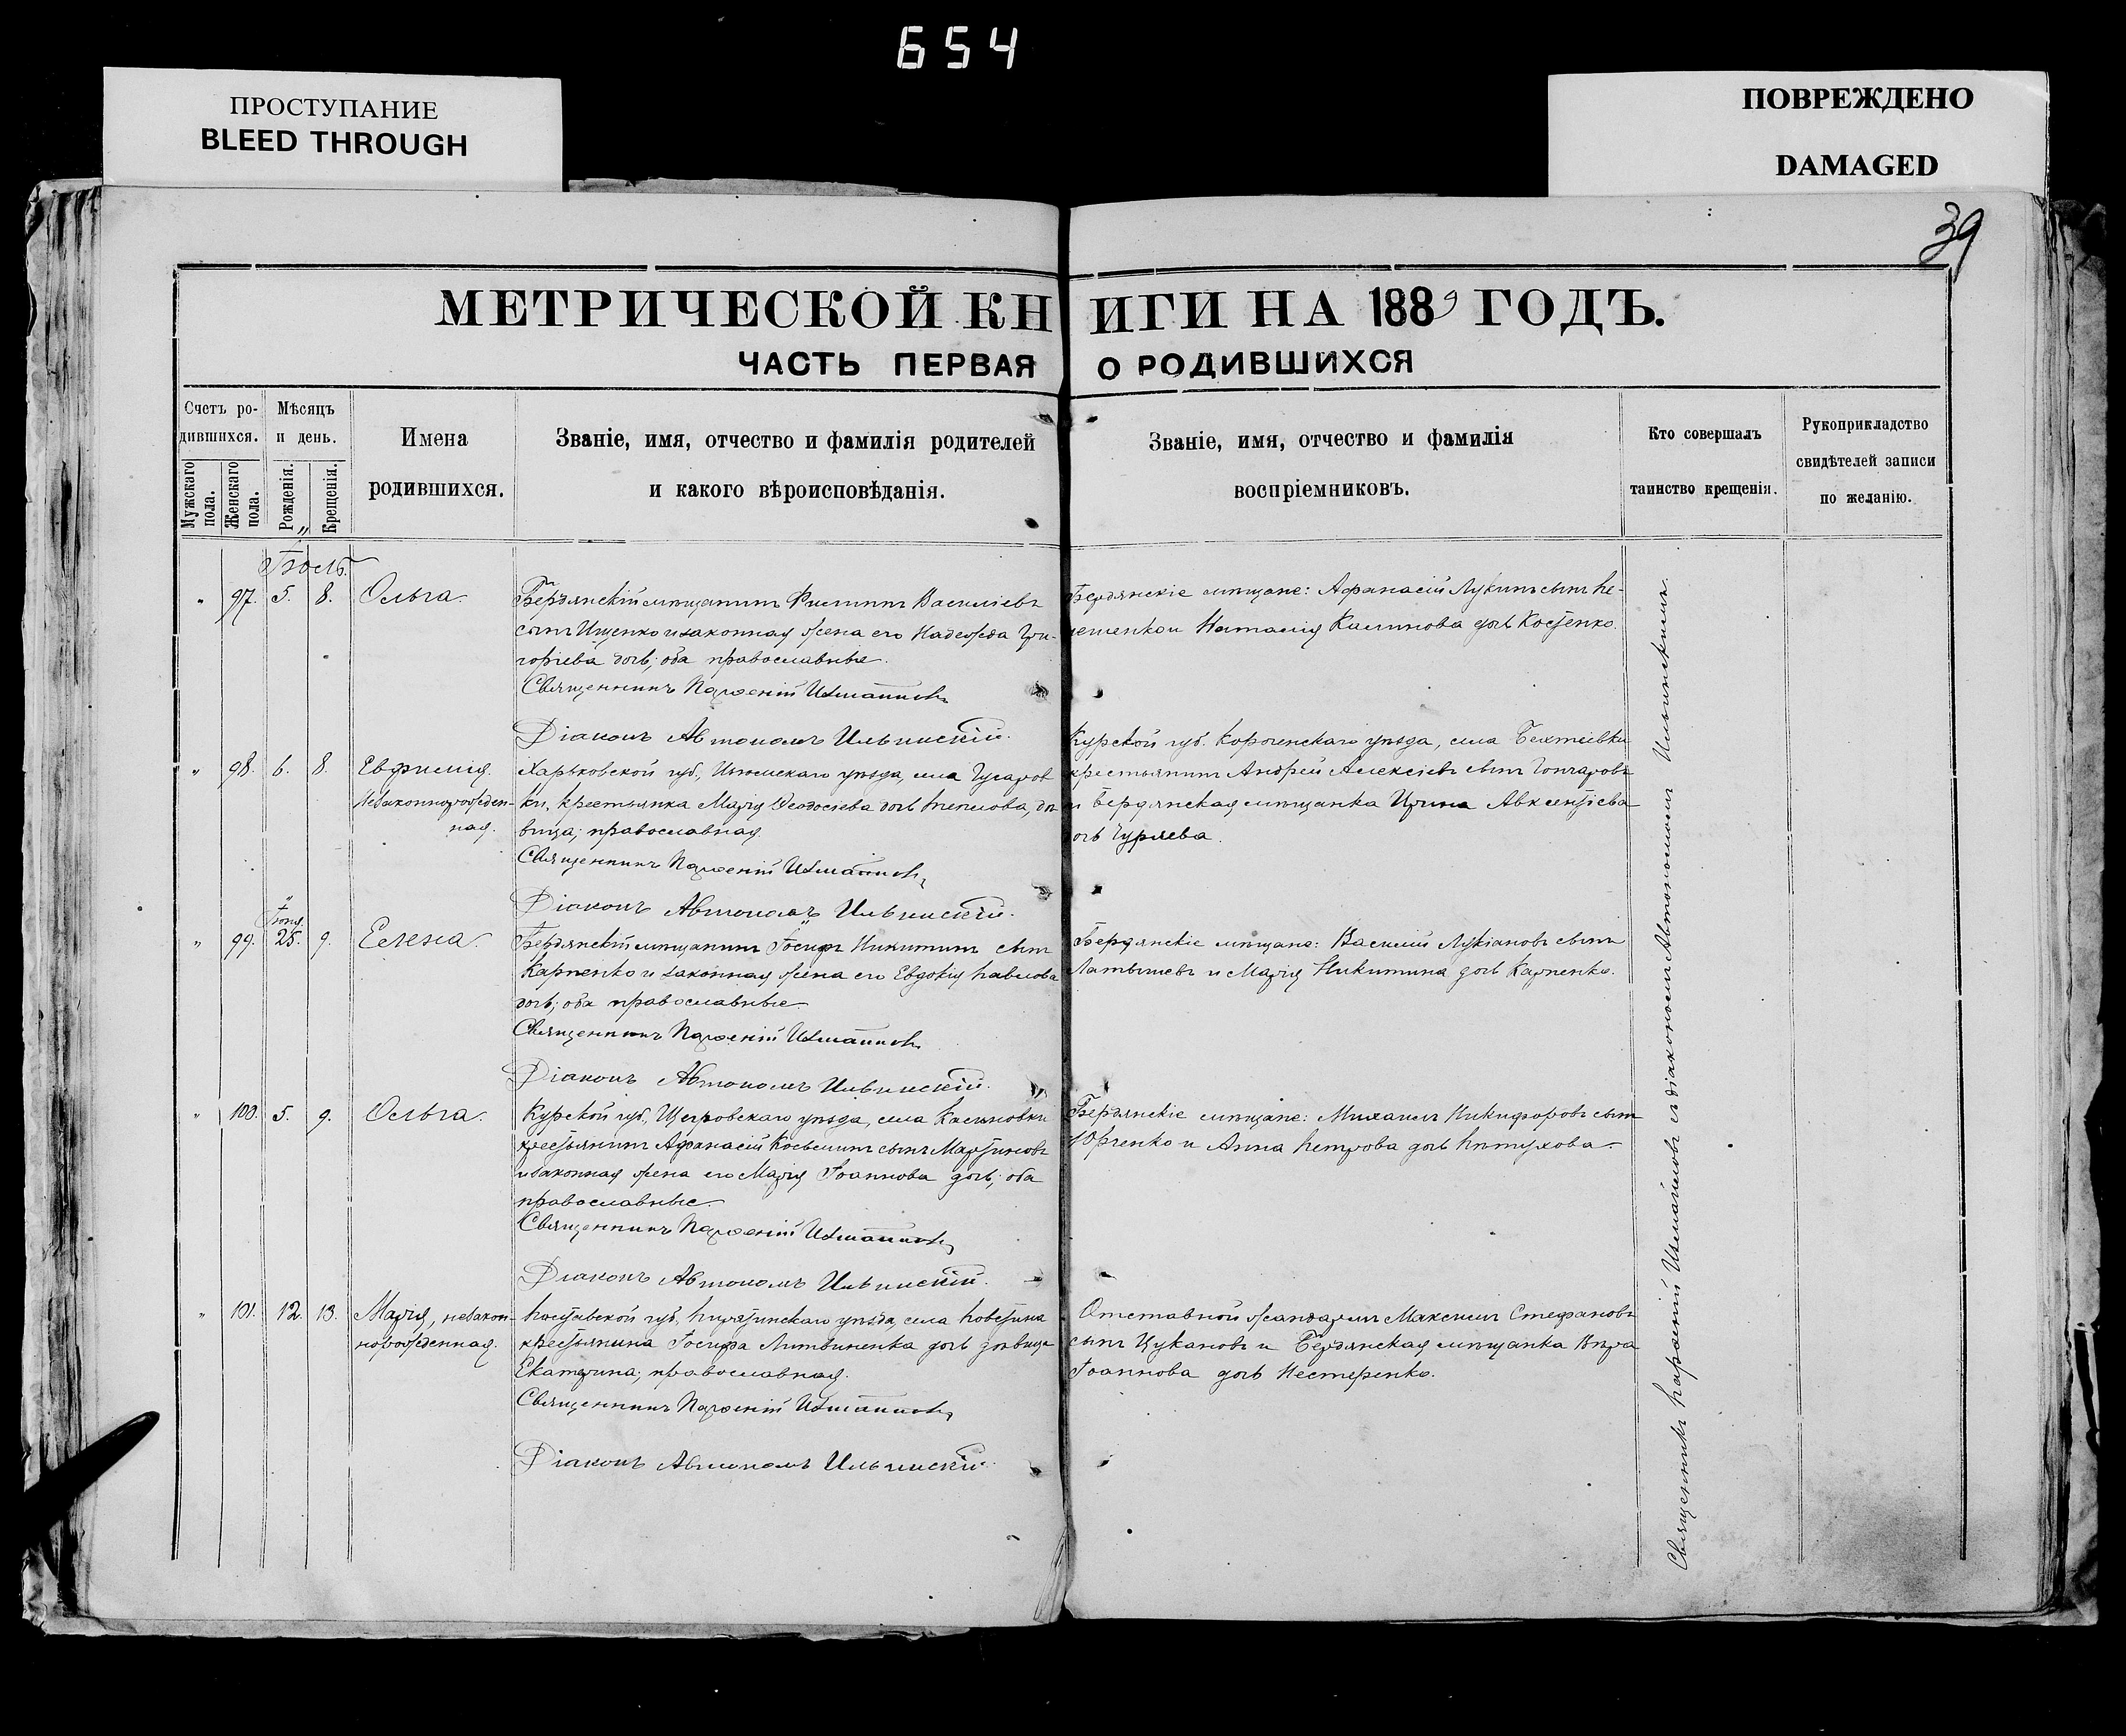 654
ПРОСТУПАНИЕ
BLEED THROUGH
ПОВРЕЖДЕНО
DAMAGED
39
МЕТРИЧЕСКОЙ КНИГИ НА 1889 ГОДЪ.
ЧАСТЬ ПЕРВАЯ О РОДИВШИХСЯ
Счетъ ро-
дившихся.
Мужскаго пола.
Женскаго пола.
Мѣсяцъ
и день.
Рожденія.
Крещенія.
Имена
родившихся.
Званіе, имя, отчество и фамилія родителей
и какого вѣроисповѣданія.
Званіе, имя, отчество и фамилія
воспріемниковъ.
Кто совершалъ
таинство крещенія.
Рукоприкладство
свидѣтелей записи
по желанію.
Іюль.
" 97. 5. 8. Ольга.
Бердянскій мѣщанинъ Филиппъ Васильевъ
сынъ Ищенко и законная жена его Надежда Гри-
горіева дочь; оба православные.
Священникъ Парѳеній
Діаконъ Автономъ Ильинскій.
Бердянскіе мѣщане: Афанасій Лукинъ сынъ
и Наталія Калинова дочь Костенко.
" 98. 6. 8. Евфимія.
Незаконнорожден-
ная.
Харьковской губ., Изюмскаго уѣзда, села Гусаров
ки, крестьянка Марія Ѳеодосіева дочь Теплова, дѣ-
вица; православная.
Священникъ Парѳеній
Діаконъ Автономъ Ильинскій.
Курской губ. Короченскаго уѣзда, села Бехтеевки
крестьянинъ Андрей Алексіевъ сынъ Гончаровъ
и Бердянская мѣщанка Ирина Авксентіева
дочь Гуряева.
Іюня.
" 99. 25. 9. Елена.
Бердянскій мѣщанинъ Іосифъ Никитинъ сынъ
Карпенко и законная жена его Евдокія Павлова
дочь; оба православные.
Священникъ Парѳеній
Діаконъ Автономъ Ильинскій.
Бердянскіе мѣщане: Василій Лукіановъ сынъ
Латышевъ и Марія Никитина дочь Карпенко.
" 100. 5. 9. Ольга.
Курской губ., Щигровскаго уѣзда, села Касиновки
крестьянинъ Афанасій Косьминъ сынъ Мартиновъ
и законная жена его Марія Іоаннова дочь; оба
православные.
Священникъ Парѳеній
Діаконъ Автономъ Ильинскій.
Бердянскіе мѣщане: Михаилъ Никифоровъ сынъ
Юрченко и Анна Петрова дочь Пѣтухова.
" 101. 12. 13. Марія, незакон-
норожденная.
Полтавской губ., Пирятинскаго уѣзда, села
крестьянина Іосифа Литвиненка дочь дѣвица
Екатерина; православная.
Священникъ Парѳеній
Діаконъ Автономъ Ильинскій.
Отставной жандармъ Максимъ Стефановъ
сынъ Цукановъ и Бердянская мѣщанка Вѣра
Іоаннова дочь Нестеренко.
Священникъ Парѳеній съ діакономъ Автономомъ Ильинскимъ.